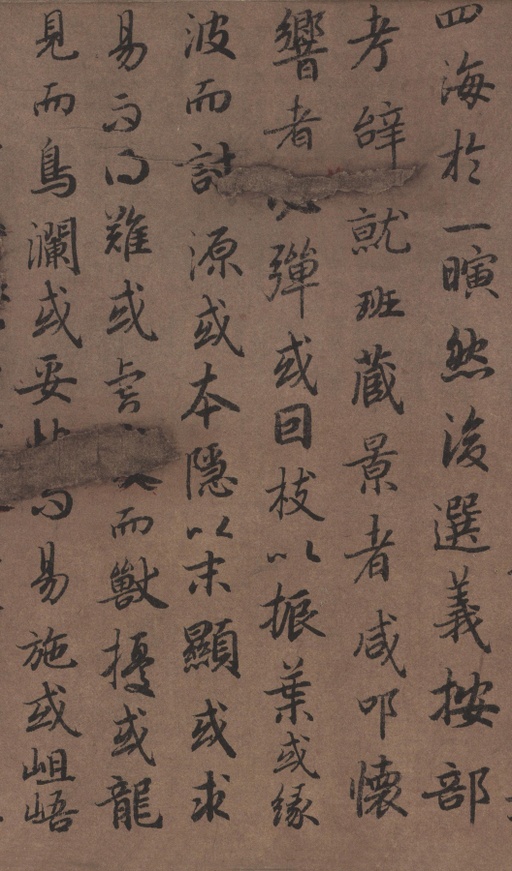 四海於一瞚然後選義按部
考辞就班藏景者咸叩懷
響者彈或因枝以振葉或緣
波而討源或本隱以末顯或求
易而得難或虎而獸擾或龍
見而鳥瀾或妥而易施或岨峿